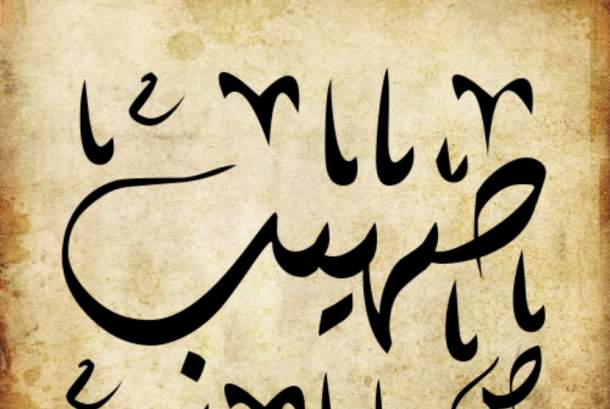 صهيب